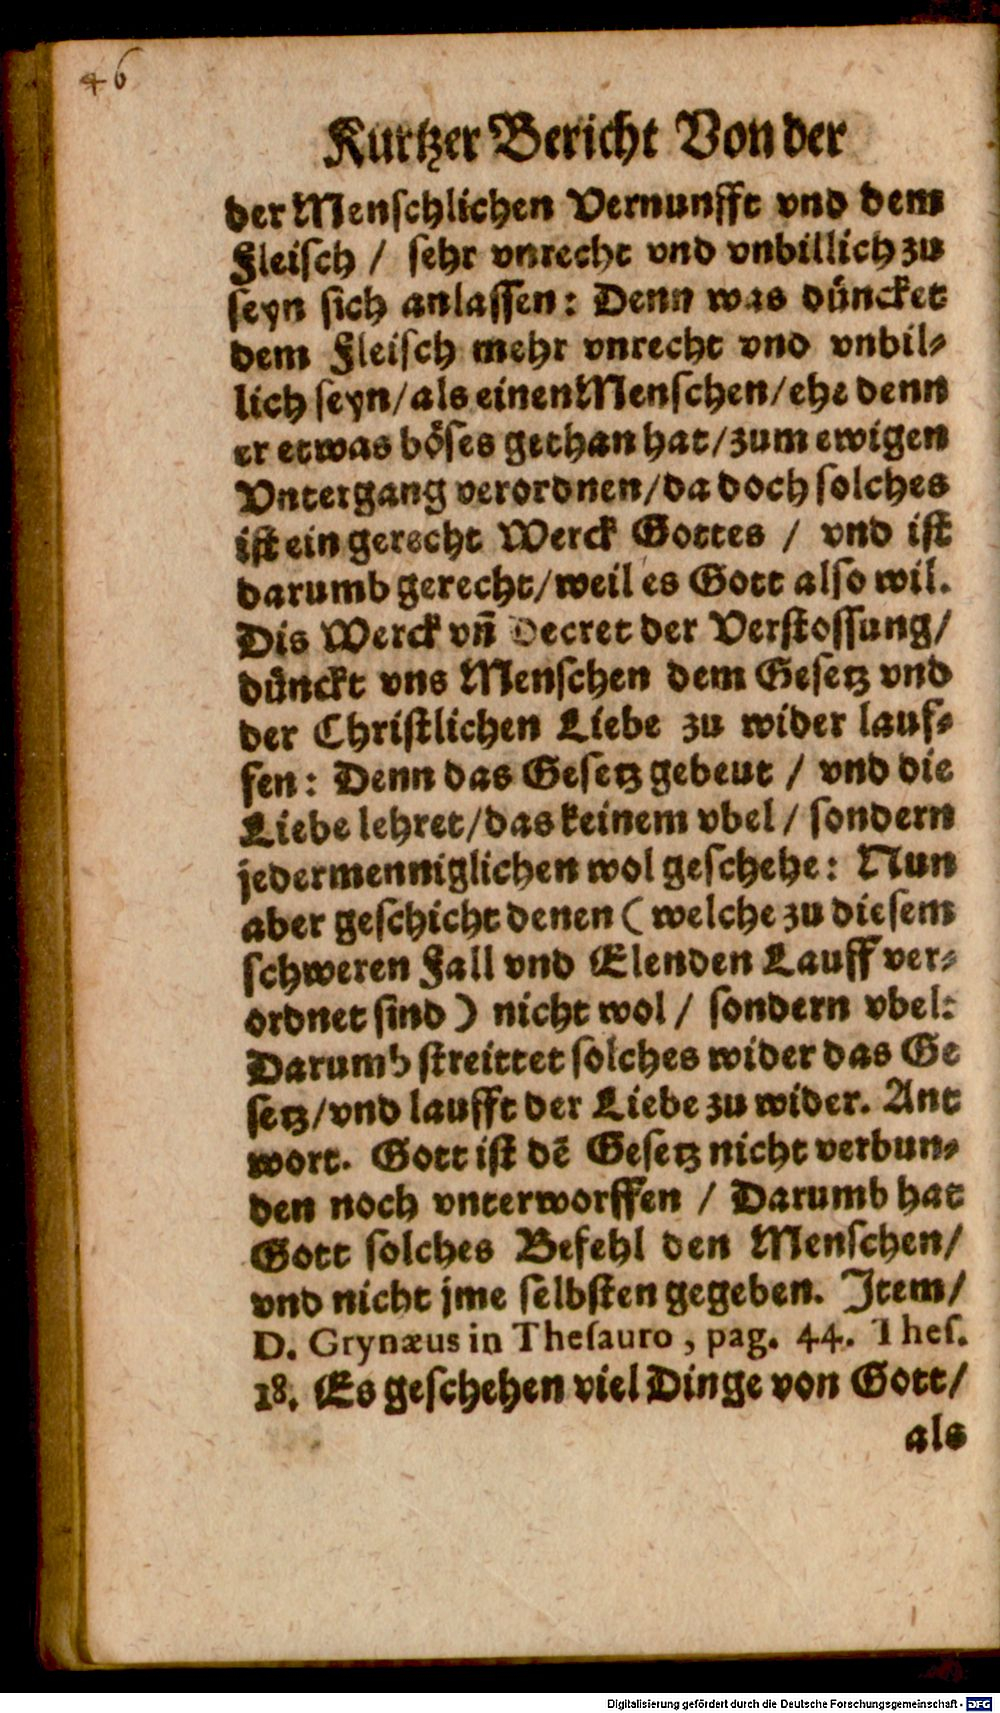 46
Kurtzer Bericht Von der
der Menschlichen Vernunfft vnd dem
Fleisch / sehr vnrecht vnd vnbillich zu
seyn sich anlassen: Denn was důncket
dem Fleisch mehr vnrecht vnd vnbil-
lich seyn/als einen Menschen/ehe denn
er etwas böses gethan hat/zum ewigen
Vntergang verordnen/da doch solches
ist ein gerecht Werck Gottes / vnd ist
darumb gerecht/weil es Gott also wil.
Dis Werck vñ Decret der Verstossung/
důnckt vns Menschen dem Gesetz vnd
der Christlichen Liebe zu wider lauf-
fen: Denn das Gesetz gebeut / vnd die
Liebe lehret/das keinem vbel / sondern
jedermenniglichen wol geschehe: Nun
aber geschicht denen ( welche zu diesem
schweren Fall vnd Elenden Lauff ver-
ordnet sind ) nicht wol / sondern vbel:
Darumb streittet solches wider das Ge
setz/vnd laufft der Liebe zu wider. Ant
wort. Gott ist dē Gesetz nicht verbun-
den noch vnterworffen / Darumb hat
Gott solches Befehl den Menschen/
vnd nicht jme selbsten gegeben. Item/
D. Grynæus in Thesauro , pag. 44. Thes.
18. Es geschehen viel Dinge von Gott/
als
Digitalisierung gefördert durch die Deutsche Forschungsgemeinschaft - DFG